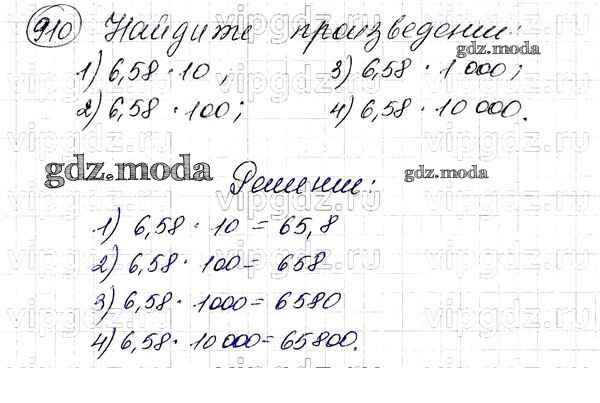 910 Найдите произведение:
1) 6,58 · 10; 3) 6,58 · 1 000;
2) 6,58 · 100; 4) 6,58 · 10 000.
gdz.moda
gdz.moda
gdz.moda
Решение:
1) 6,58 · 10 = 65,8
2) 6,58 · 100 = 658
3) 6,58 · 1000 = 6580
4) 6,58 · 10 000 = 65800.
vipgdz.ru